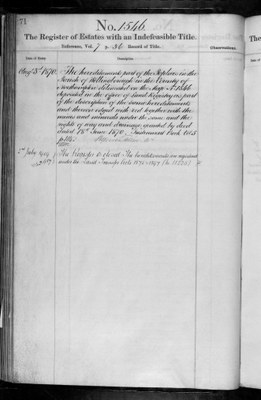 71
No. 1546.
The Register of Estates with an Indefeasible Title.
Reference, Vol. 7 & 36 Record of Title.
Date of Entry. Description. Observations.
Aug 3rd 1870. The hereditaments part of the in the
Parish of Wellingborough in the County of
Northampton delineated on the Map No. 1546
deposited in the office of Land Registry as part
of the description of the said hereditaments
and thereon edged with red together with the
mines and minerals under the same and the
rights of way and drainage granted by deed
dated 18th June 1870, Instrument Book Vol 3
p
5th July 1904 The Register is closed. The hereditaments are registered
under the Land Transfer Acts 1875 & 1897